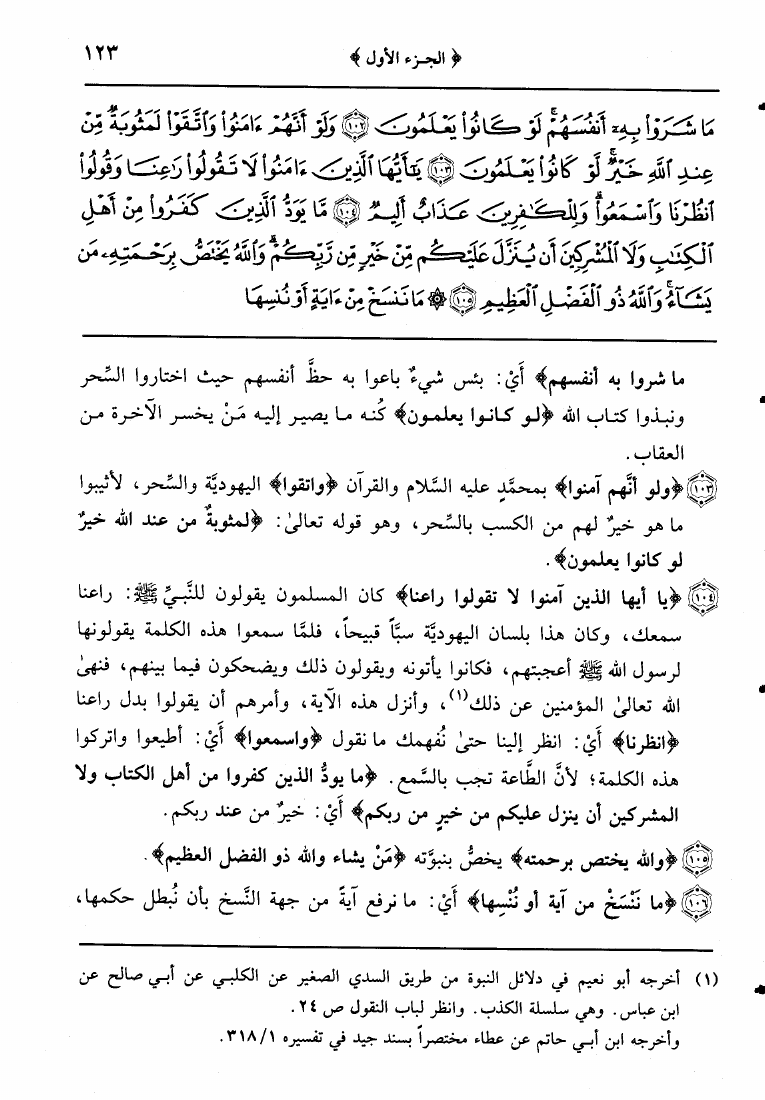 ﴿ الجزء الأول ﴾ ١٢٣
مَا شَرَوْا۟ بِهِۦٓ أَنفُسَهُمْ ۚ لَوْ كَانُوا۟ يَعْلَمُونَ ١٠٢ وَلَوْ أَنَّهُمْ ءَامَنُوا۟ وَٱتَّقَوْا۟ لَمَثُوبَةٌ مِّنْ
عِندِ ٱللَّهِ خَيْرٌ ۖ لَّوْ كَانُوا۟ يَعْلَمُونَ ١٠٣ يَٰٓأَيُّهَا ٱلَّذِينَ ءَامَنُوا۟ لَا تَقُولُوا۟ رَٰعِنَا وَقُولُوا۟
ٱنظُرْنَا وَٱسْمَعُوا۟ ۗ وَلِلْكَٰفِرِينَ عَذَابٌ أَلِيمٌ ١٠٤ مَّا يَوَدُّ ٱلَّذِينَ كَفَرُوا۟ مِنْ أَهْلِ
ٱلْكِتَٰبِ وَلَا ٱلْمُشْرِكِينَ أَن يُنَزَّلَ عَلَيْكُم مِّنْ خَيْرٍ مِّن رَّبِّكُمْ ۗ وَٱللَّهُ يَخْتَصُّ بِرَحْمَتِهِۦ مَن
يَشَآءُ ۚ وَٱللَّهُ ذُو ٱلْفَضْلِ ٱلْعَظِيمِ ١٠٥ ۞ مَا نَنسَخْ مِنْ ءَايَةٍ أَوْ نُنسِهَا
ما شروا به أنفسهم﴾ أيْ: بئس شيءٌ باعوا به حظَّ أنفسهم حيث اختاروا السِّحر
ونبذوا كتاب الله ﴿لو كانوا يعلمون﴾ كُنه ما يصير إليه مَنْ يخسر الآخرة من
العقاب.
١٠٣ ﴿ولو أنَّهم آمنوا﴾ بمحمَّدٍ عليه السَّلام والقرآن ﴿واتقوا﴾ اليهوديَّة والسِّحر، لأثيبوا
ما هو خيرٌ لهم من الكسب بالسِّحر، وهو قوله تعالىٰ: ﴿لمثوبةٌ من عند الله خيرٌ
لو كانوا يعلمون﴾.
١٠٤ ﴿يا أيها الذين آمنوا لا تقولوا راعنا﴾ كان المسلمون يقولون للنَّبيِّ ﷺ: راعنا
سمعك، وكان هذا بلسان اليهوديَّة سبَّاً قبيحاً، فلمَّا سمعوا هذه الكلمة يقولونها
لرسول الله ﷺ أعجبتهم، فكانوا يأتونه ويقولون ذلك ويضحكون فيما بينهم، فنهىٰ
الله تعالىٰ المؤمنين عن ذلك(١)، وأنزل هذه الآية، وأمرهم أن يقولوا بدل راعنا
﴿انظرنا﴾ أيْ: انظر إلينا حتىٰ نُفهمك ما نقول ﴿واسمعوا﴾ أيْ: أطيعوا واتركوا
هذه الكلمة؛ لأنَّ الطَّاعة تجب بالسَّمع. ﴿ما يودُّ الذين كفروا من أهل الكتاب ولا
المشركين أن ينزل عليكم من خيرٍ من ربكم﴾ أيْ: خيرٌ من عند ربكم.
١٠٥ ﴿والله يختص برحمته﴾ يخصُّ بنبوَّته ﴿مَنْ يشاء والله ذو الفضل العظيم﴾.
١٠٦ ﴿ما نَنْسَخْ من آية أو نُنْسِها﴾ أيْ: ما نرفع آيةً من جهة النَّسخ بأن نُبطل حكمها،
(١) أخرجه أبو نعيم في دلائل النبوة من طريق السدي الصغير عن الكلبي عن أبي صالح عن
ابن عباس. وهي سلسلة الكذب. وانظر لباب النقول ص ٢٤.
وأخرجه ابن أبي حاتم عن عطاء مختصراً بسند جيد في تفسيره ٣١٨/١.